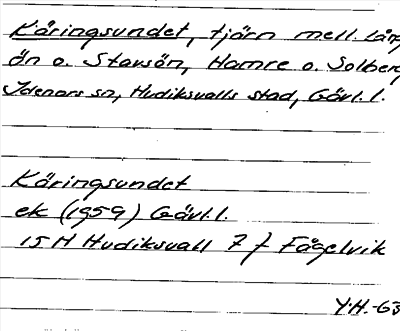 Käringsundet, tjärn mell. Lång
ön o. Stavsön, Hamre o. Solberg
Idenors sn, Hudiksvalls stad, Gävl. l.
Käringsundet
ek (1959) Gävl. l.
15 H Hudiksvall 7 f Fågelvik
Y.H.-63